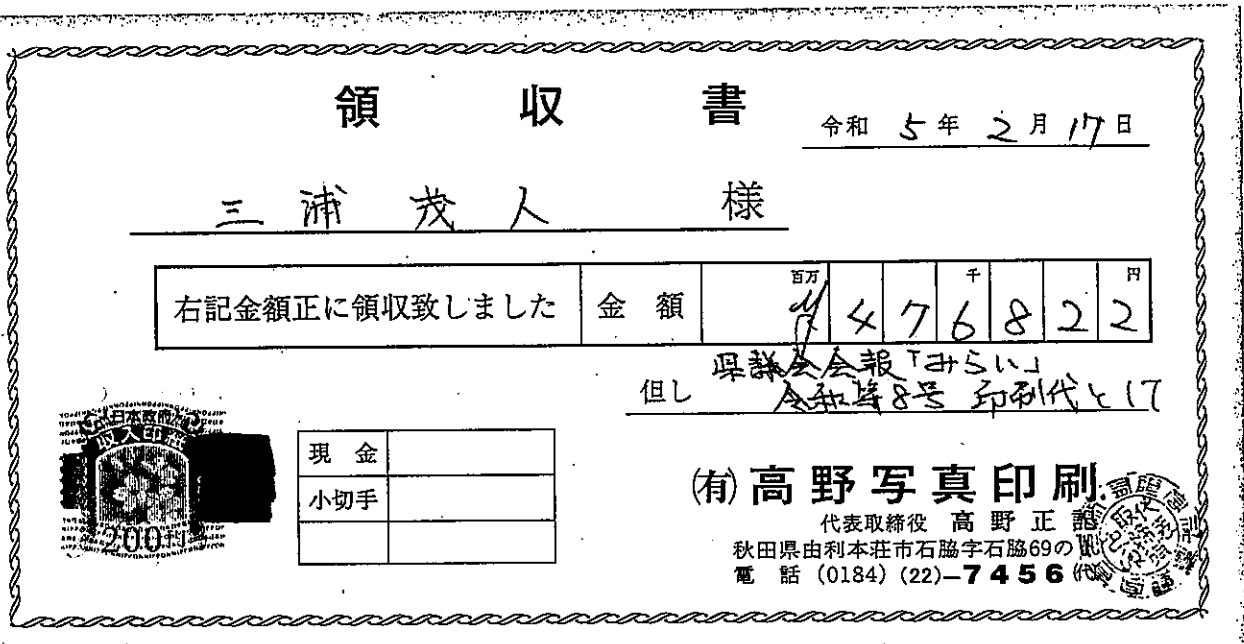 領収書
令和5年2月17日
三浦茂人様
右記金額正に領収致しました 金額 百万 千 円 ¥476822
県議会会報「みらい」
但し 令和第8号 印刷代として
日本政府
収入印紙
200円
現金
小切手
(有)高野写真印刷
代表取締役 高野正
秋田県由利本荘市石脇字石脇69の
電話 (0184) (22)-7456